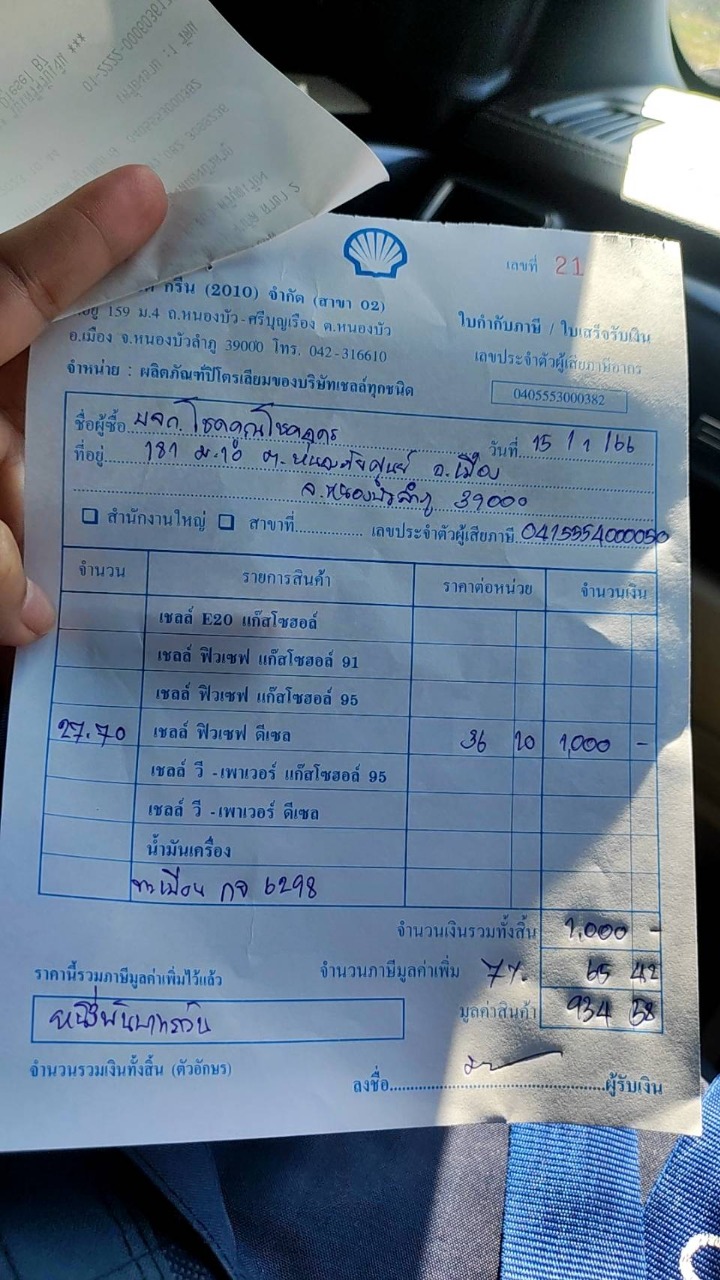 เลขที่ 21
กรีน (2010) จำกัด (สาขา 02)
159 ม.4 ถ.หนองบัว-ศรีบุญเรือง ต.หนองบัว
อ.เมือง จ.หนองบัวลำภู 39000 โทร. 042-316610
จำหน่าย : ผลิตภัณฑ์ปิโตรเลียมของบริษัทเชลล์ทุกชนิด
ใบกำกับภาษี / ใบเสร็จรับเงิน
เลขประจำตัวผู้เสียภาษีอากร
0405553000382
ชื่อผู้ซื้อ บจก. โชคคูณโชคอุดร วันที่ 15 / 1 / 66
ที่อยู่ 181 ม.10 ต. อ.เมือง
จ.หนองบัวลำภู 39000
สำนักงานใหญ่ สาขาที่ เลขประจำตัวผู้เสียภาษี 0415554000050
จำนวน รายการสินค้า ราคาต่อหน่วย จำนวนเงิน
เชลล์ E20 แก๊สโซฮอล์
เชลล์ ฟิวเซฟ แก๊สโซฮอล์ 91
เชลล์ ฟิวเซฟ แก๊สโซฮอล์ 95
27.70 เชลล์ ฟิวเซฟ ดีเซล 36 10 1,000 -
เชลล์ วี -เพาเวอร์ แก๊สโซฮอล์ 95
เชลล์ วี -เพาเวอร์ ดีเซล
น้ำมันเครื่อง
ทะเบียน กจ 6298
จำนวนเงินรวมทั้งสิ้น 1,000 -
ราคานี้รวมภาษีมูลค่าเพิ่มไว้แล้ว จำนวนภาษีมูลค่าเพิ่ม 7%. 65 42
หนึ่งพันบาทถ้วน มูลค่าสินค้า 934 58
จำนวนรวมเงินทั้งสิ้น (ตัวอักษร) ลงชื่อ ผู้รับเงิน